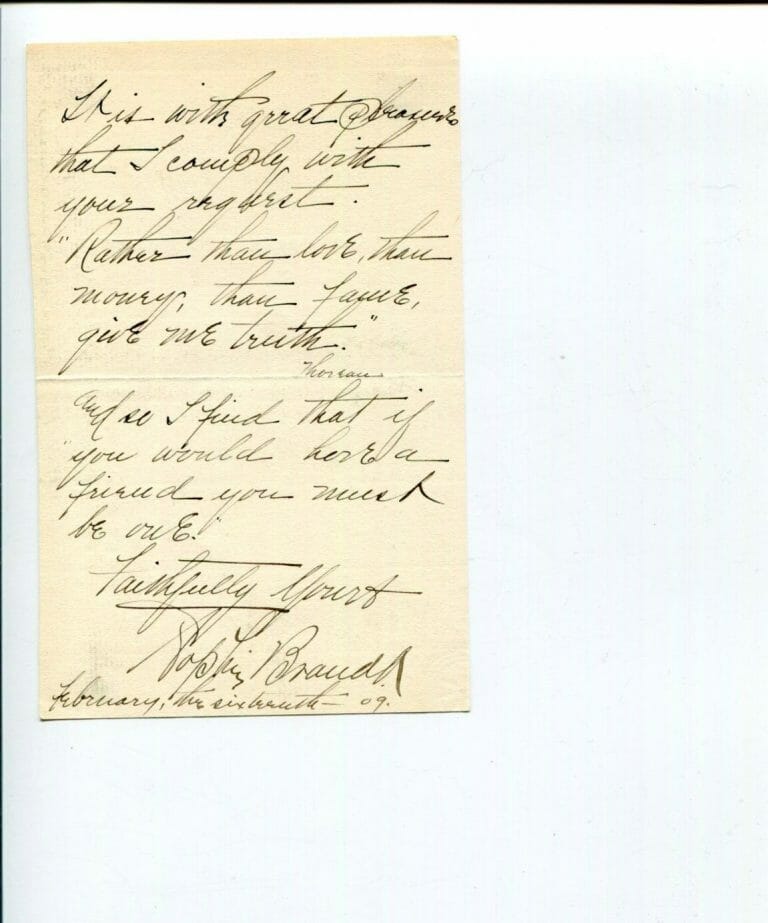 It is with great pleasure
that I comply with
your request.
"Rather than love, than
money, than fame,
give me truth."
Thoreau
And so I find that if
"you would have a
friend you must
be one."
Faithfully Yours
Sophie Brandt
February, the sixteenth - 09.